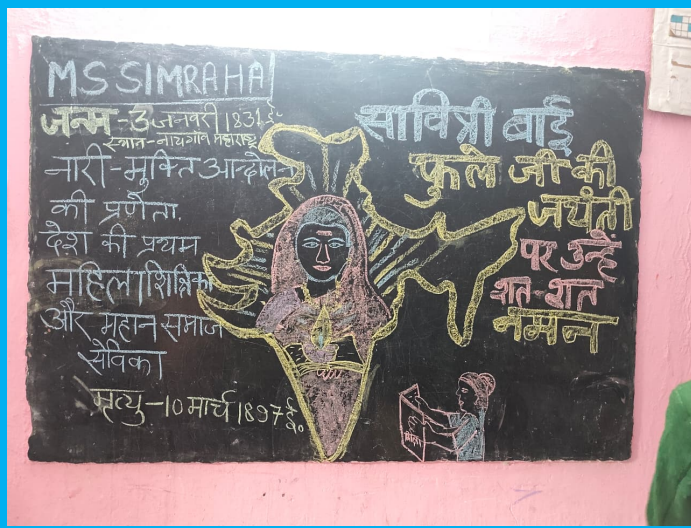 MS SIMRAHA
जन्म - 3 जनवरी 1831 ई०
स्थान - नायगांव महाराष्ट्र
नारी-मुक्ति आन्दोलन
की प्रणेता.
देश की प्रथम
महिला शिक्षिका
और महान समाज
सेविका
मृत्यु - 10 मार्च 1897 ई०
सावित्री बाई
फुले जी की
जयंती
पर उन्हें
शत-शत
नमन